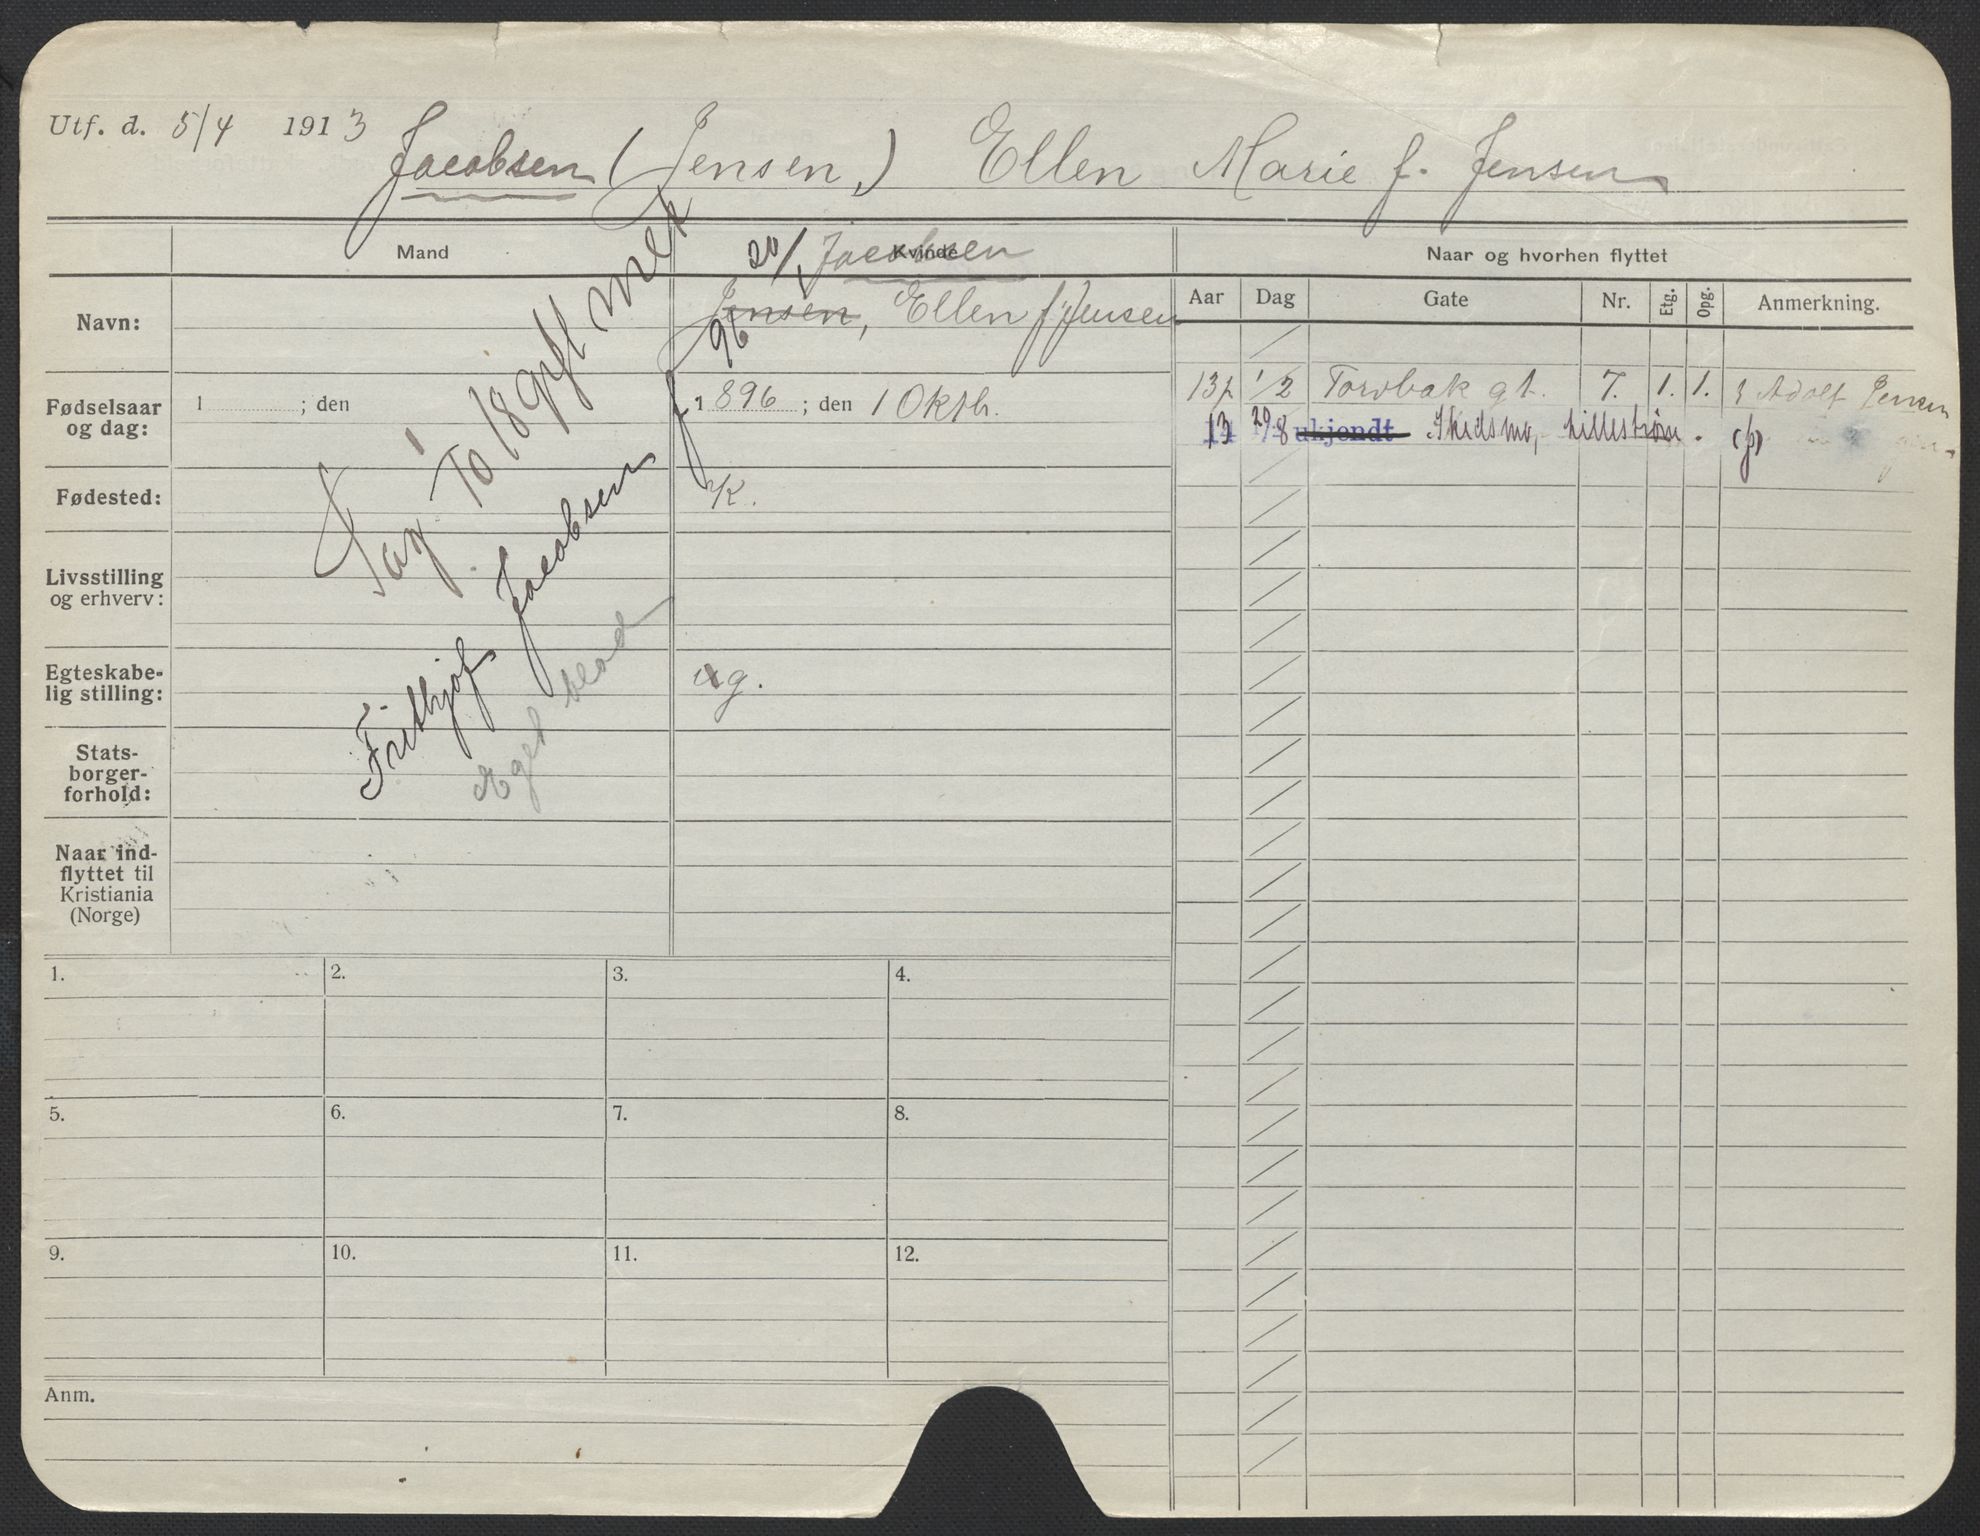 Utf. d. 5/4 1913 Jacobsen (Jensen,) Ellen Marie f. Jensen
Mand
20/1 Jacobsen
Kvinde
Naar og hvorhen flyttet
Navn:
Jensen, Ellen f. Jensen
Aar Dag Gate Nr. Etg. Opg. Anmerkning.
13 1/2 Torvbak gt. 7. 1. 1. Adolf Jensen
13 29/8 ukjendt Skedsmo, Lillestrøm. (f)
Fødselsaar
og dag:
1 ; den
1896 ; den 1 Oktb.
Fødested:
K.
Livsstilling
og erhverv:
Egteskabe-
lig stilling:
ug.
Stats-
borger-
forhold:
Naar ind-
flyttet til
Kristiania
(Norge)
gift med
Frithjof Jacobsen f 20/1 96
Eget blad
1. 2. 3. 4.
5. 6. 7. 8.
9. 10. 11. 12.
Anm.